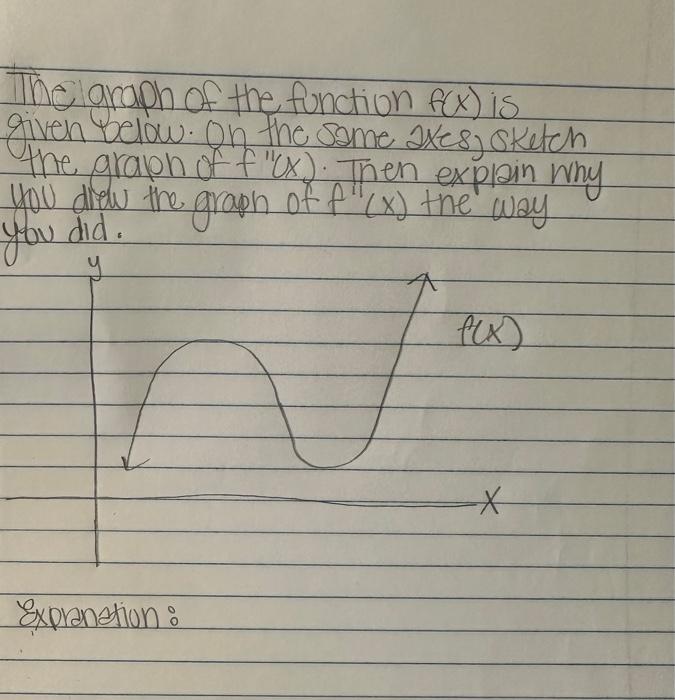 The graph of the function f(x) is
given below. On the same axes, sketch
the graph of f"(x). Then explain why
you drew the graph of f"(x) the way
you did.
y
f(x)
X
Explanation: